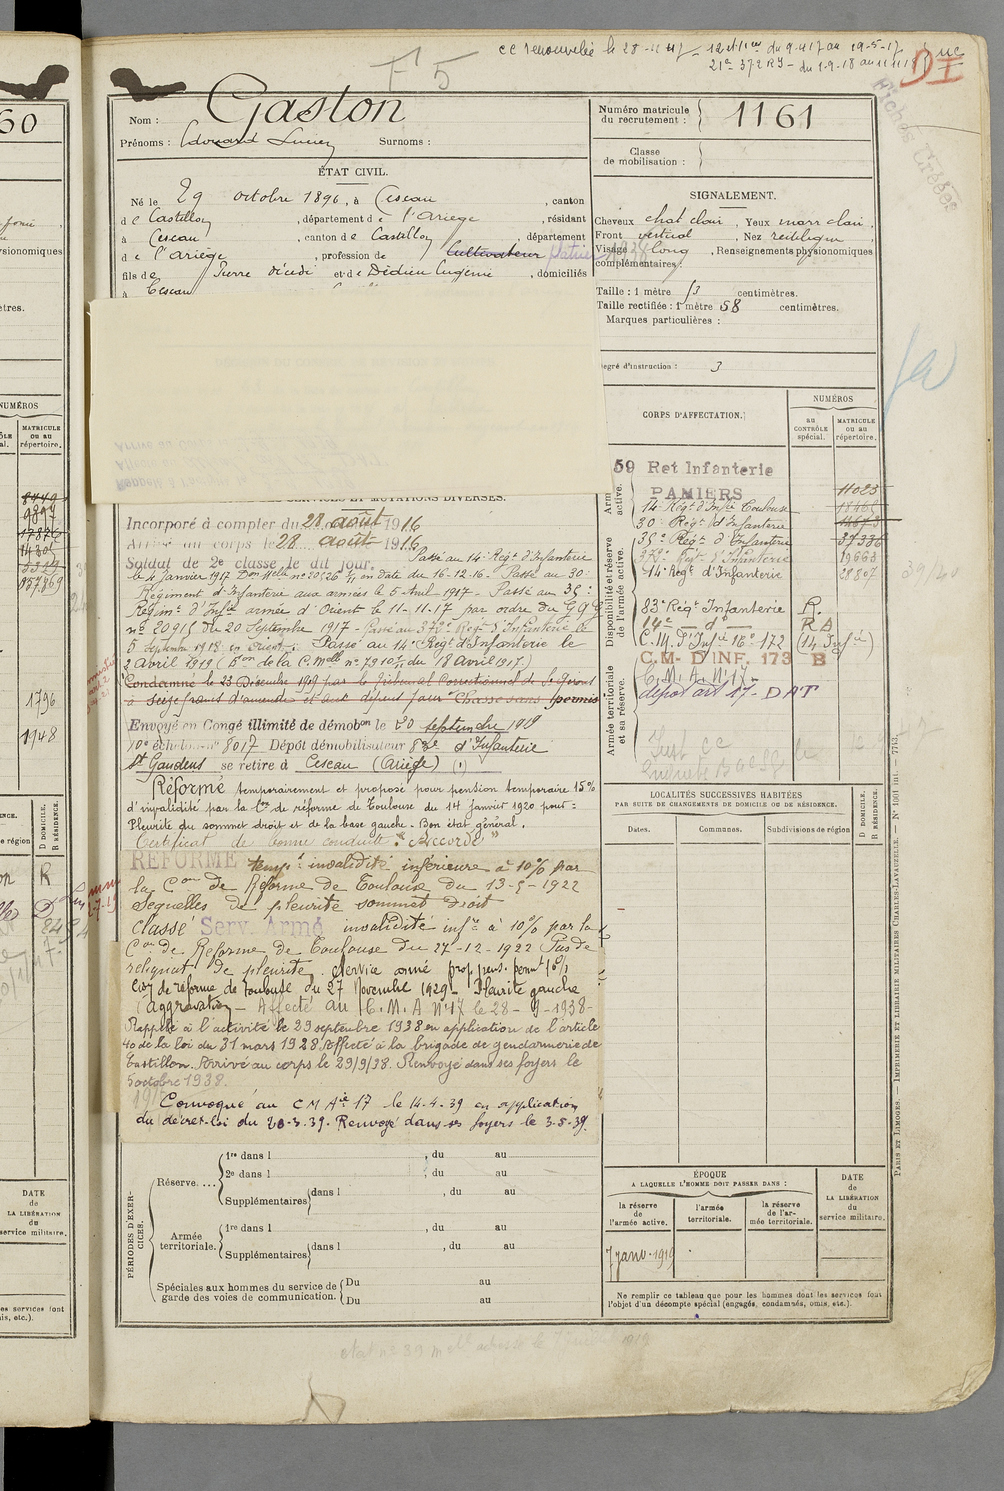 cc renouvelée le 28-11-47 - 12 et 1ier du 9-4-17 au 19-5-17
21e 372 RI - du 1-9-18 au 11 11 18
F 5
DI
Fiches Créées
Nom : Gaston
Prénoms : Edouard Lucien Surnoms :
Numéro matricule du recrutement : 1161
Classe de mobilisation :
ÉTAT CIVIL.
Né le 29 octobre 1896, à Cescau, canton
de Castillon, département de l'Ariège, résidant
à Cescau, canton de Castillon, département
de l'Ariège, profession de Cultivateur
fils de Pierre décédé et de Dédieu Eugénie, domiciliés
à Cescau
SIGNALEMENT.
Cheveux chat clair, Yeux marr clair,
Front vertical, Nez rectiligne
Visage long, Renseignements physionomiques
complémentaires :
Taille : 1 mètre 53 centimètres.
Taille rectifiée : 1 mètre 58 centimètres.
Marques particulières :
Degré d'instruction : 3
CORPS D'AFFECTATION.
NUMÉROS
au CONTRÔLE spécial.
MATRICULE ou au répertoire.
59 Ret Infanterie
PAMIERS 11023
14e Régt d'Inf Toulouse
30e Régt d'Infanterie
35e Régt d'Infanterie 37336
372e Régt d'Infanterie 19668
14e Régt d'Infanterie 28807
83e Régt Infanterie R.
14e — do — RA
C. 14 d'Infie 16e 172 (14 Infie)
C.M- D'INF. 173 B
C. M. A. N°17 -
dépôt art 17 - DAT
Disponibilité et réserve de l'armée active.
Armée territoriale et sa réserve.
SERVICES ET MUTATIONS DIVERSES.
Incorporé à compter du 28 août 1916
Arrivé au corps le 28 août 1916
Soldat de 2e classe le dit jour. Passé au 14e Régt d'Infanterie
le 4 Janvier 1917 en date du 16-12-16 - Passé au 30e
Régiment d'Infanterie aux armées le 5 Avril 1917 - Passé au 35e
Régimt d'Infie armée d'Orient le 11-11-17 par ordre du G Q G
no 20915 du 20 Septembre 1917 - Passé au 372e Régt d'Infanterie le
5 Septembre 1918 en Orient. Passé au 14e Régt d'Infanterie le
2 avril 1919
Condamné le 23 Décembre 1909 par le Tribunal Correctionnel de St Girons
à seize francs d'amende et aux dépens pour "Chasse sans permis
Envoyé en Congé illimité de démobon le 20 septembre 1919
10e échelon no 8017 Dépôt démobilisateur 83e d'Infanterie
St Gaudens se retire à Cescau (Ariège) (1)
Réformé temporairement et proposé pour pension temporaire 15%
d'invalidité par la Con de réforme de Toulouse du 14 Janvier 1920 pour :
Pleurite du sommet droit et de la base gauche. Bon état général.
Certificat de bonne conduite : "Accordé"
RÉFORMÉ tempt invalidité inférieure à 10% par
la Con de Réforme de Toulouse du 13-5-1922
Sequelles de pleurite sommet droit
classé Serv. Armé invalidité infre à 10% par la
Con de Reforme de Toulouse du 27-12-1922 Pas de
reliquat de pleurite. Service armé prop. pens. permt 10%
Con de réforme de Toulouse du 27 Novembre 1929 - Pleurite gauche
(aggravation) - Affecté au C. M. A N°17 le 28-9-1938-
Rappelé à l'activité le 29 septembre 1938 en application de l'article
40 de la loi du 31 mars 1928. Affecté à la brigade de gendarmerie de
Castillon. Arrivé au corps le 29/9/38. Renvoyé dans ses foyers le
5 octobre 1938.
Convoqué au C M Aie 17 le 14-4-39 en application
du décret-loi du 20-3-39. Renvoyé dans ses foyers le 3-5-39.
LOCALITÉS SUCCESSIVES HABITÉES
PAR SUITE DE CHANGEMENTS DE DOMICILE OU DE RÉSIDENCE.
Dates. Communes. Subdivisions de région
D DOMICILE, R RÉSIDENCE.
PÉRIODES D'EXERCICES.
Réserve. ...
1re dans l , du au
2e dans l , du au
Supplémentaires dans l , du au
Armée territoriale.
1re dans l , du au
Supplémentaires dans l , du au
Spéciales aux hommes du service de garde des voies de communication.
Du au
Du au
ÉPOQUE
A LAQUELLE L'HOMME DOIT PASSER DANS :
la réserve de l'armée active.
l'armée territoriale.
la réserve de l'armée territoriale.
DATE de LA LIBÉRATION du service militaire.
7 janv. 1919
Ne remplir ce tableau que pour les hommes dont les services font
l'objet d'un décompte spécial (engagés, condamnés, omis, etc.).
PARIS ET LIMOGES. — IMPRIMERIE ET LIBRAIRIE MILITAIRES CHARLES-LAVAUZELLE. — N° 1001 int. — 7713.
60
NUMÉROS
MATRICULE ou au répertoire.
1796
1948
D DOMICILE, R RÉSIDENCE.
R
D
DATE de LA LIBÉRATION du service militaire.